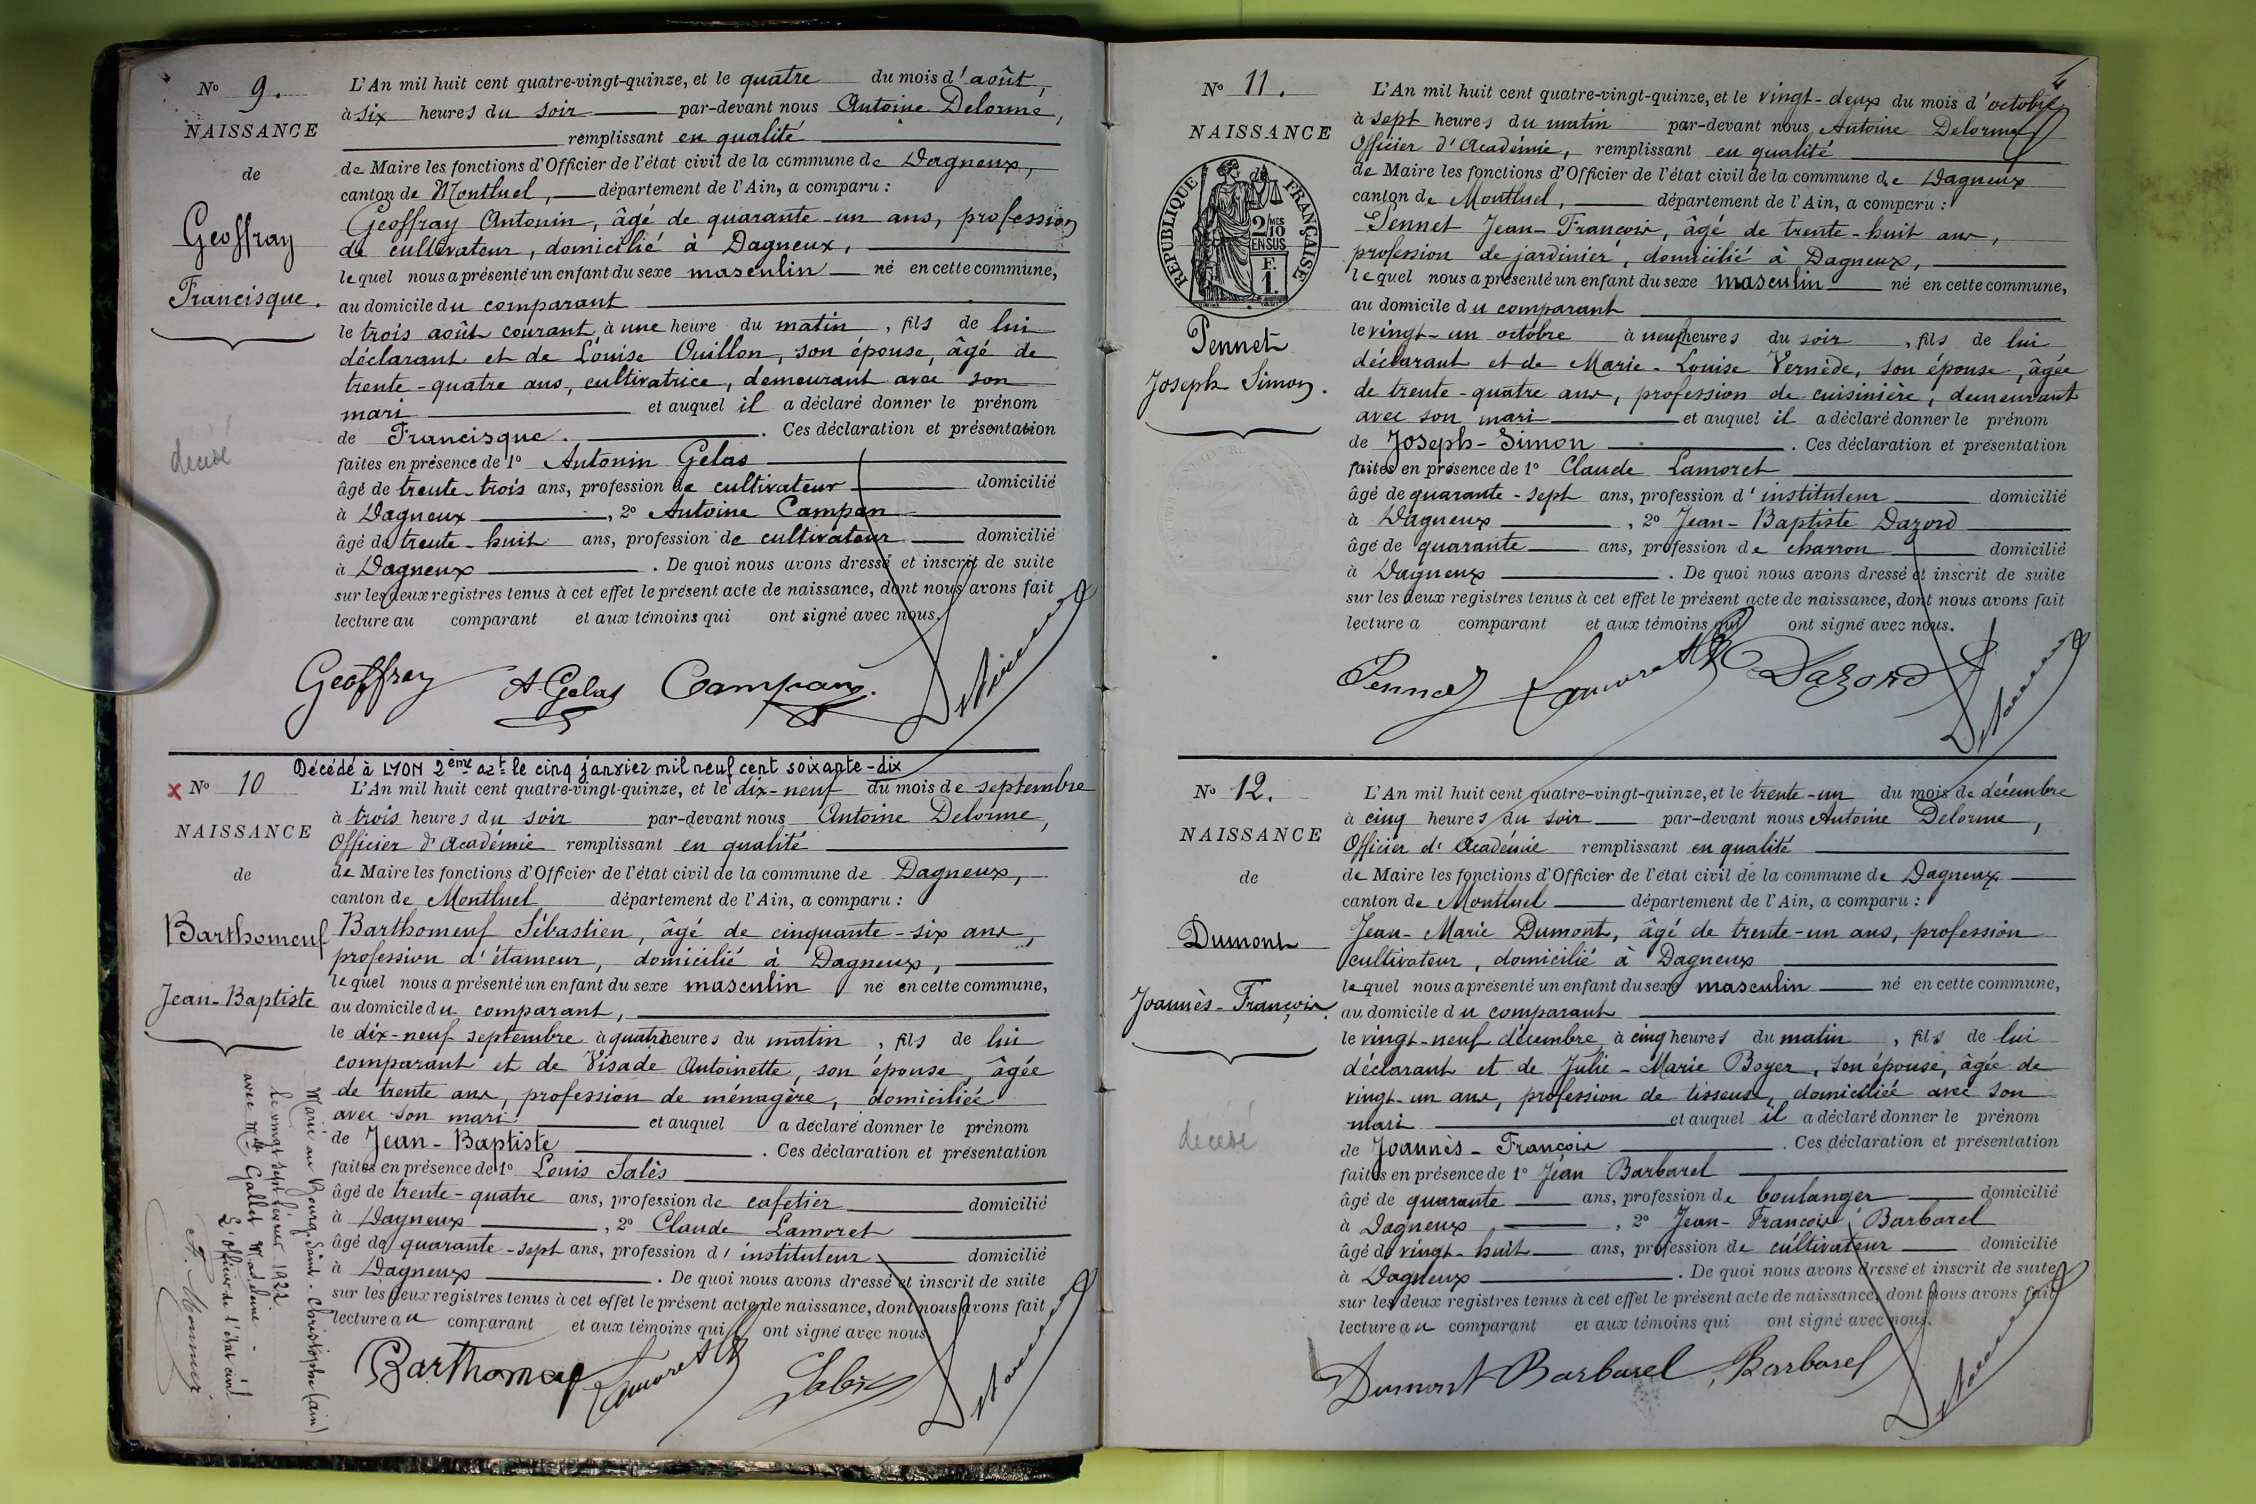 No 9.
NAISSANCE
de
Geoffray
Francisque.
décédé
L'An mil huit cent quatre-vingt-quinze, et le quatre du mois d'août,
à six heures du soir par-devant nous Antoine Delorme,
remplissant en qualité
de Maire les fonctions d'Officier de l'état civil de la commune de Dagneux,
canton de Montluel, département de l'Ain, a comparu :
Geoffray Antonin, âgé de quarante-un ans, profession
de cultivateur, domicilié à Dagneux,
lequel nous a présenté un enfant du sexe masculin né en cette commune,
au domicile du comparant
le trois août courant à une heure du matin, fils de lui
déclarant et de Louise Quillon, son épouse, âgé de
trente-quatre ans, cultivatrice, demeurant avec son
mari et auquel il a déclaré donner le prénom
de Francisque. Ces déclaration et présentation
faites en présence de 1o Antonin Gelas
âgé de trente-trois ans, profession de cultivateur domicilié
à Dagneux, 2o Antoine Campan
âgé de trente-huit ans, profession de cultivateur domicilié
à Dagneux. De quoi nous avons dressé et inscrit de suite
sur les deux registres tenus à cet effet le présent acte de naissance, dont nous avons fait
lecture au comparant et aux témoins qui ont signé avec nous.
Geoffray A Gelas Campan Delorme
Décédé à LYON 2ème art le cinq janvier mil neuf cent soixante-dix
x No 10
NAISSANCE
de
Barthomeuf
Jean-Baptiste
Marié au Bourg-Saint-Christophe (Ain)
le vingt sept février 1922
avec Mlle Gallet Madeleine -
L'officier de l'état civil.
L'An mil huit cent quatre-vingt-quinze, et le dix-neuf du mois de septembre
à trois heures du soir par-devant nous Antoine Delorme,
Officier d'Académie remplissant en qualité
de Maire les fonctions d'Officier de l'état civil de la commune de Dagneux,
canton de Montluel département de l'Ain, a comparu :
Barthomeuf Sébastien, âgé de cinquante-six ans,
profession d'étameur, domicilié à Dagneux,
lequel nous a présenté un enfant du sexe masculin né en cette commune,
au domicile du comparant,
le dix-neuf septembre à quatre heures du matin, fils de lui
comparant et de Visade Antoinette, son épouse, âgée
de trente ans, profession de ménagère, domiciliée
avec son mari et auquel a déclaré donner le prénom
de Jean-Baptiste. Ces déclaration et présentation
faites en présence de 1o Louis Salès
âgé de trente-quatre ans, profession de cafetier domicilié
à Dagneux, 2o Claude Lamoret
âgé de quarante-sept ans, profession d'instituteur domicilié
à Dagneux. De quoi nous avons dressé et inscrit de suite
sur les deux registres tenus à cet effet le présent acte de naissance, dont nous avons fait
lecture au comparant et aux témoins qui ont signé avec nous.
Barthomeuf Lamoret Salès Delorme
No 11.
NAISSANCE
RÉPUBLIQUE FRANÇAISE
2 MES
10
EN SUS
F.
1.
Pennet
Joseph Simon.
L'An mil huit cent quatre-vingt-quinze, et le vingt-deux du mois d'octobre
à sept heures du matin par-devant nous Antoine Delorme
Officier d'Académie, remplissant en qualité
de Maire les fonctions d'Officier de l'état civil de la commune de Dagneux
canton de Montluel, département de l'Ain, a comparu :
Pennet Jean-François, âgé de trente-huit ans,
profession de jardinier, domicilié à Dagneux,
lequel nous a présenté un enfant du sexe masculin né en cette commune,
au domicile du comparant
le vingt-un octobre à neuf heures du soir, fils de lui
déclarant et de Marie-Louise Vernède, son épouse, âgée
de trente-quatre ans, profession de cuisinière, demeurant
avec son mari et auquel il a déclaré donner le prénom
de Joseph-Simon. Ces déclaration et présentation
faites en présence de 1o Claude Lamoret
âgé de quarante-sept ans, profession d'instituteur domicilié
à Dagneux, 2o Jean-Baptiste Dazord
âgé de quarante ans, profession de charron domicilié
à Dagneux. De quoi nous avons dressé et inscrit de suite
sur les deux registres tenus à cet effet le présent acte de naissance, dont nous avons fait
lecture a comparant et aux témoins qui ont signé avec nous.
Pennet Lamoret Dazord Delorme
No 12.
NAISSANCE
de
Dumont
Joannès-François.
décédé
L'An mil huit cent quatre-vingt-quinze, et le trente-un du mois de décembre
à cinq heures du soir par-devant nous Antoine Delorme,
Officier d'Académie remplissant en qualité
de Maire les fonctions d'Officier de l'état civil de la commune de Dagneux
canton de Montluel département de l'Ain, a comparu :
Jean-Marie Dumont, âgé de trente-un ans, profession
cultivateur, domicilié à Dagneux
lequel nous a présenté un enfant du sexe masculin né en cette commune,
au domicile du comparant
le vingt-neuf décembre à cinq heures du matin, fils de lui
déclarant et de Julie-Marie Boyer, son épouse, âgée de
vingt-un ans, profession de tisseuse, domiciliée avec son
mari et auquel il a déclaré donner le prénom
de Joannès-François. Ces déclaration et présentation
faites en présence de 1o Jean Barbarel
âgé de quarante ans, profession de boulanger domicilié
à Dagneux, 2o Jean-François Barbarel
âgé de vingt-huit ans, profession de cultivateur domicilié
à Dagneux. De quoi nous avons dressé et inscrit de suite
sur les deux registres tenus à cet effet le présent acte de naissance, dont nous avons fait
lecture au comparant et aux témoins qui ont signé avec nous.
Dumont Barbarel Barbarel Delorme